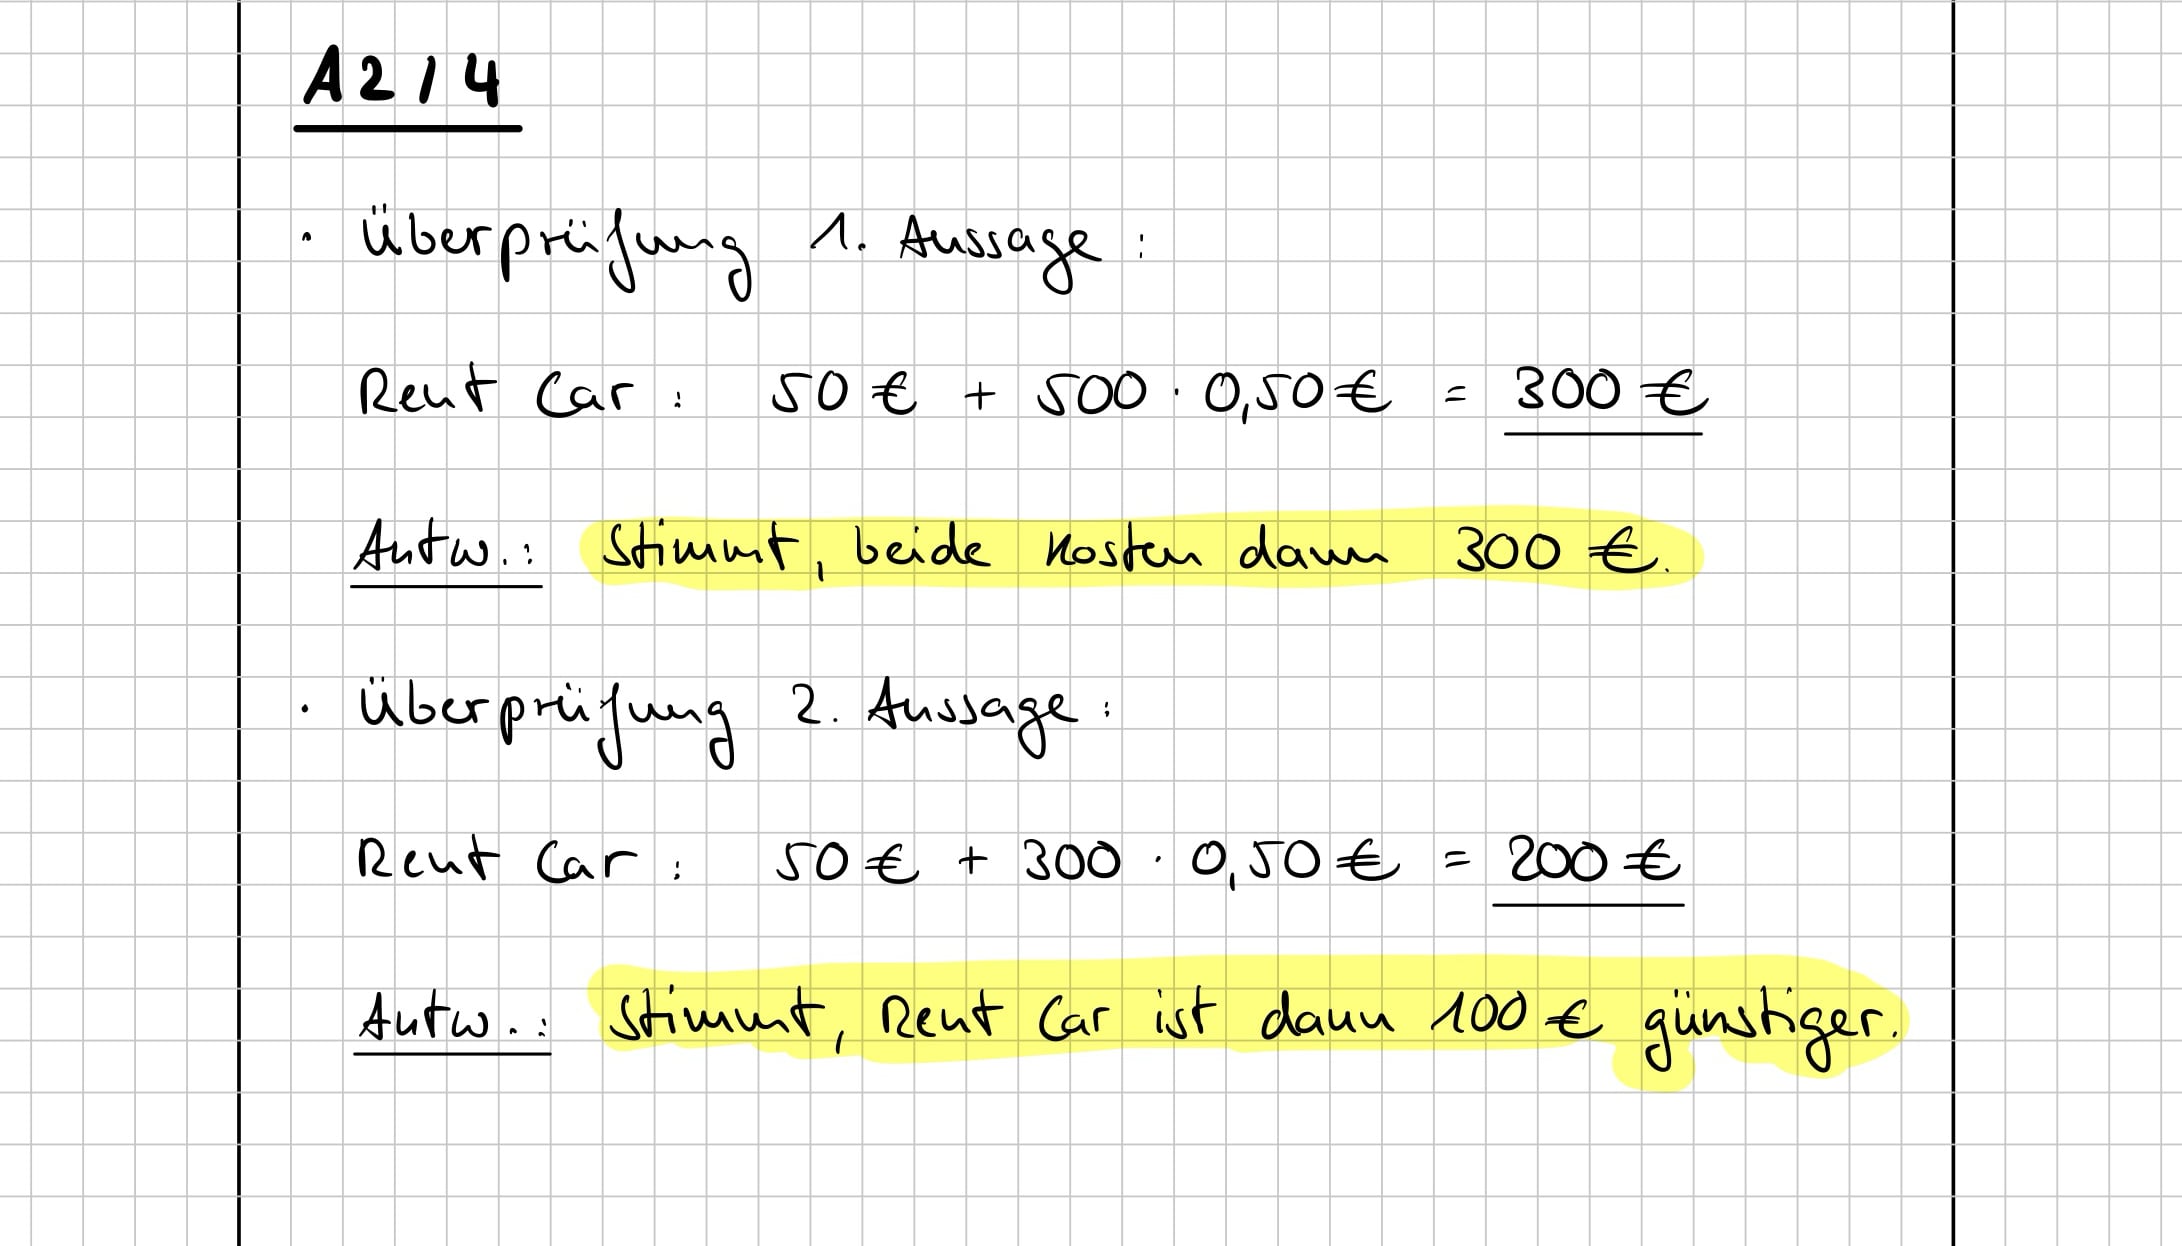 A2/4
· Überprüfung 1. Aussage:
Rent Car: 50 € + 500 · 0,50 € = 300 €
Antw.: Stimmt, beide kosten dann 300 €.
· Überprüfung 2. Aussage:
Rent Car: 50 € + 300 · 0,50 € = 200 €
Antw.: Stimmt, Rent Car ist dann 100 € günstiger.